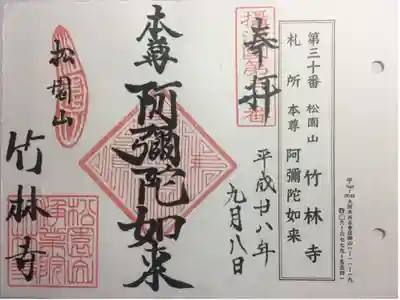 第三十番 松園山 竹林寺
札所 本尊 阿彌陀如来
奉拝
平成廿八年
九月八日
本尊
阿彌陀如来
松園山
竹林寺